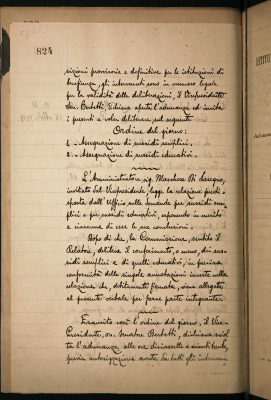 824
visioni provvisorie e definitive per le istituzioni di
beneficenza, gli intervenuti sono in numero legale
per la validità delle deliberazioni, il Vicepresidente
Sen. Berbetti, dichiara aperta l'adunanza ed invita
i presenti a voler deliberare sul seguente
Ordine del giorno:
1. - Assegnazione di sussidi semplici.
2. - Assegnazione di sussidi educativi.
L'Amministratore sig. Marchese Pi
invitato dal Vicepresidente, legge la relazione predi-
sposta dall'Ufficio sulle domande per sussidi sem-
plici e per sussidi educativi, esponendo in merito
a ciascuna di esse le sue conclusioni.
Dopo di che, la Commissione, sentito il
Relatore, delibera il conferimento, o meno, dei sus-
sidi semplici e di quelli educativi, in precisa
conformità delle singole annotazioni inserte nella
relazione che, debitamente firmata, viene allegata
al presente verbale per farne parte integrante.
Esaurito così l'ordine del giorno, il Vice-
Presidente, on. Senatore Berbetti, dichiara sciol-
ta l'adunanza alle ore diciassette e minuti trenta,
previa autorizzazione avuta da tutti gli interve
ISTITU